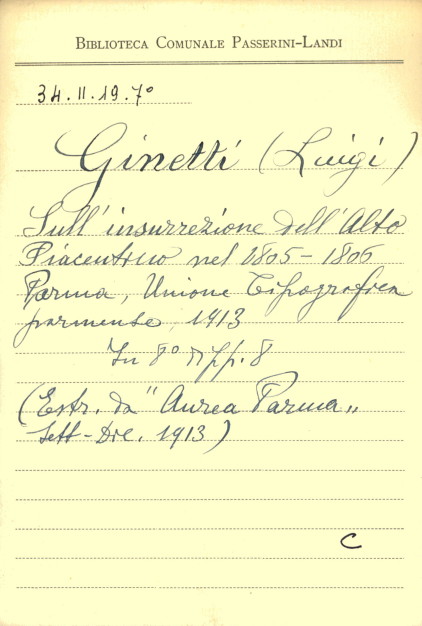 BIBLIOTECA COMUNALE PASSERINI-LANDI
34.II.19.7°
Ginetti (Luigi)
Sull'insurrezione dell'Alto
Piacentino nel 1805-1806
Parma, Unione Tipografica
parmense, 1913
In 8° pp. 8
(Estr. da "Aurea Parma"
Sett-Dic. 1913)
C